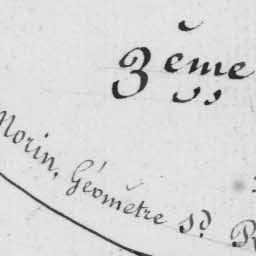 3ème
Morin, Géomètre sd.